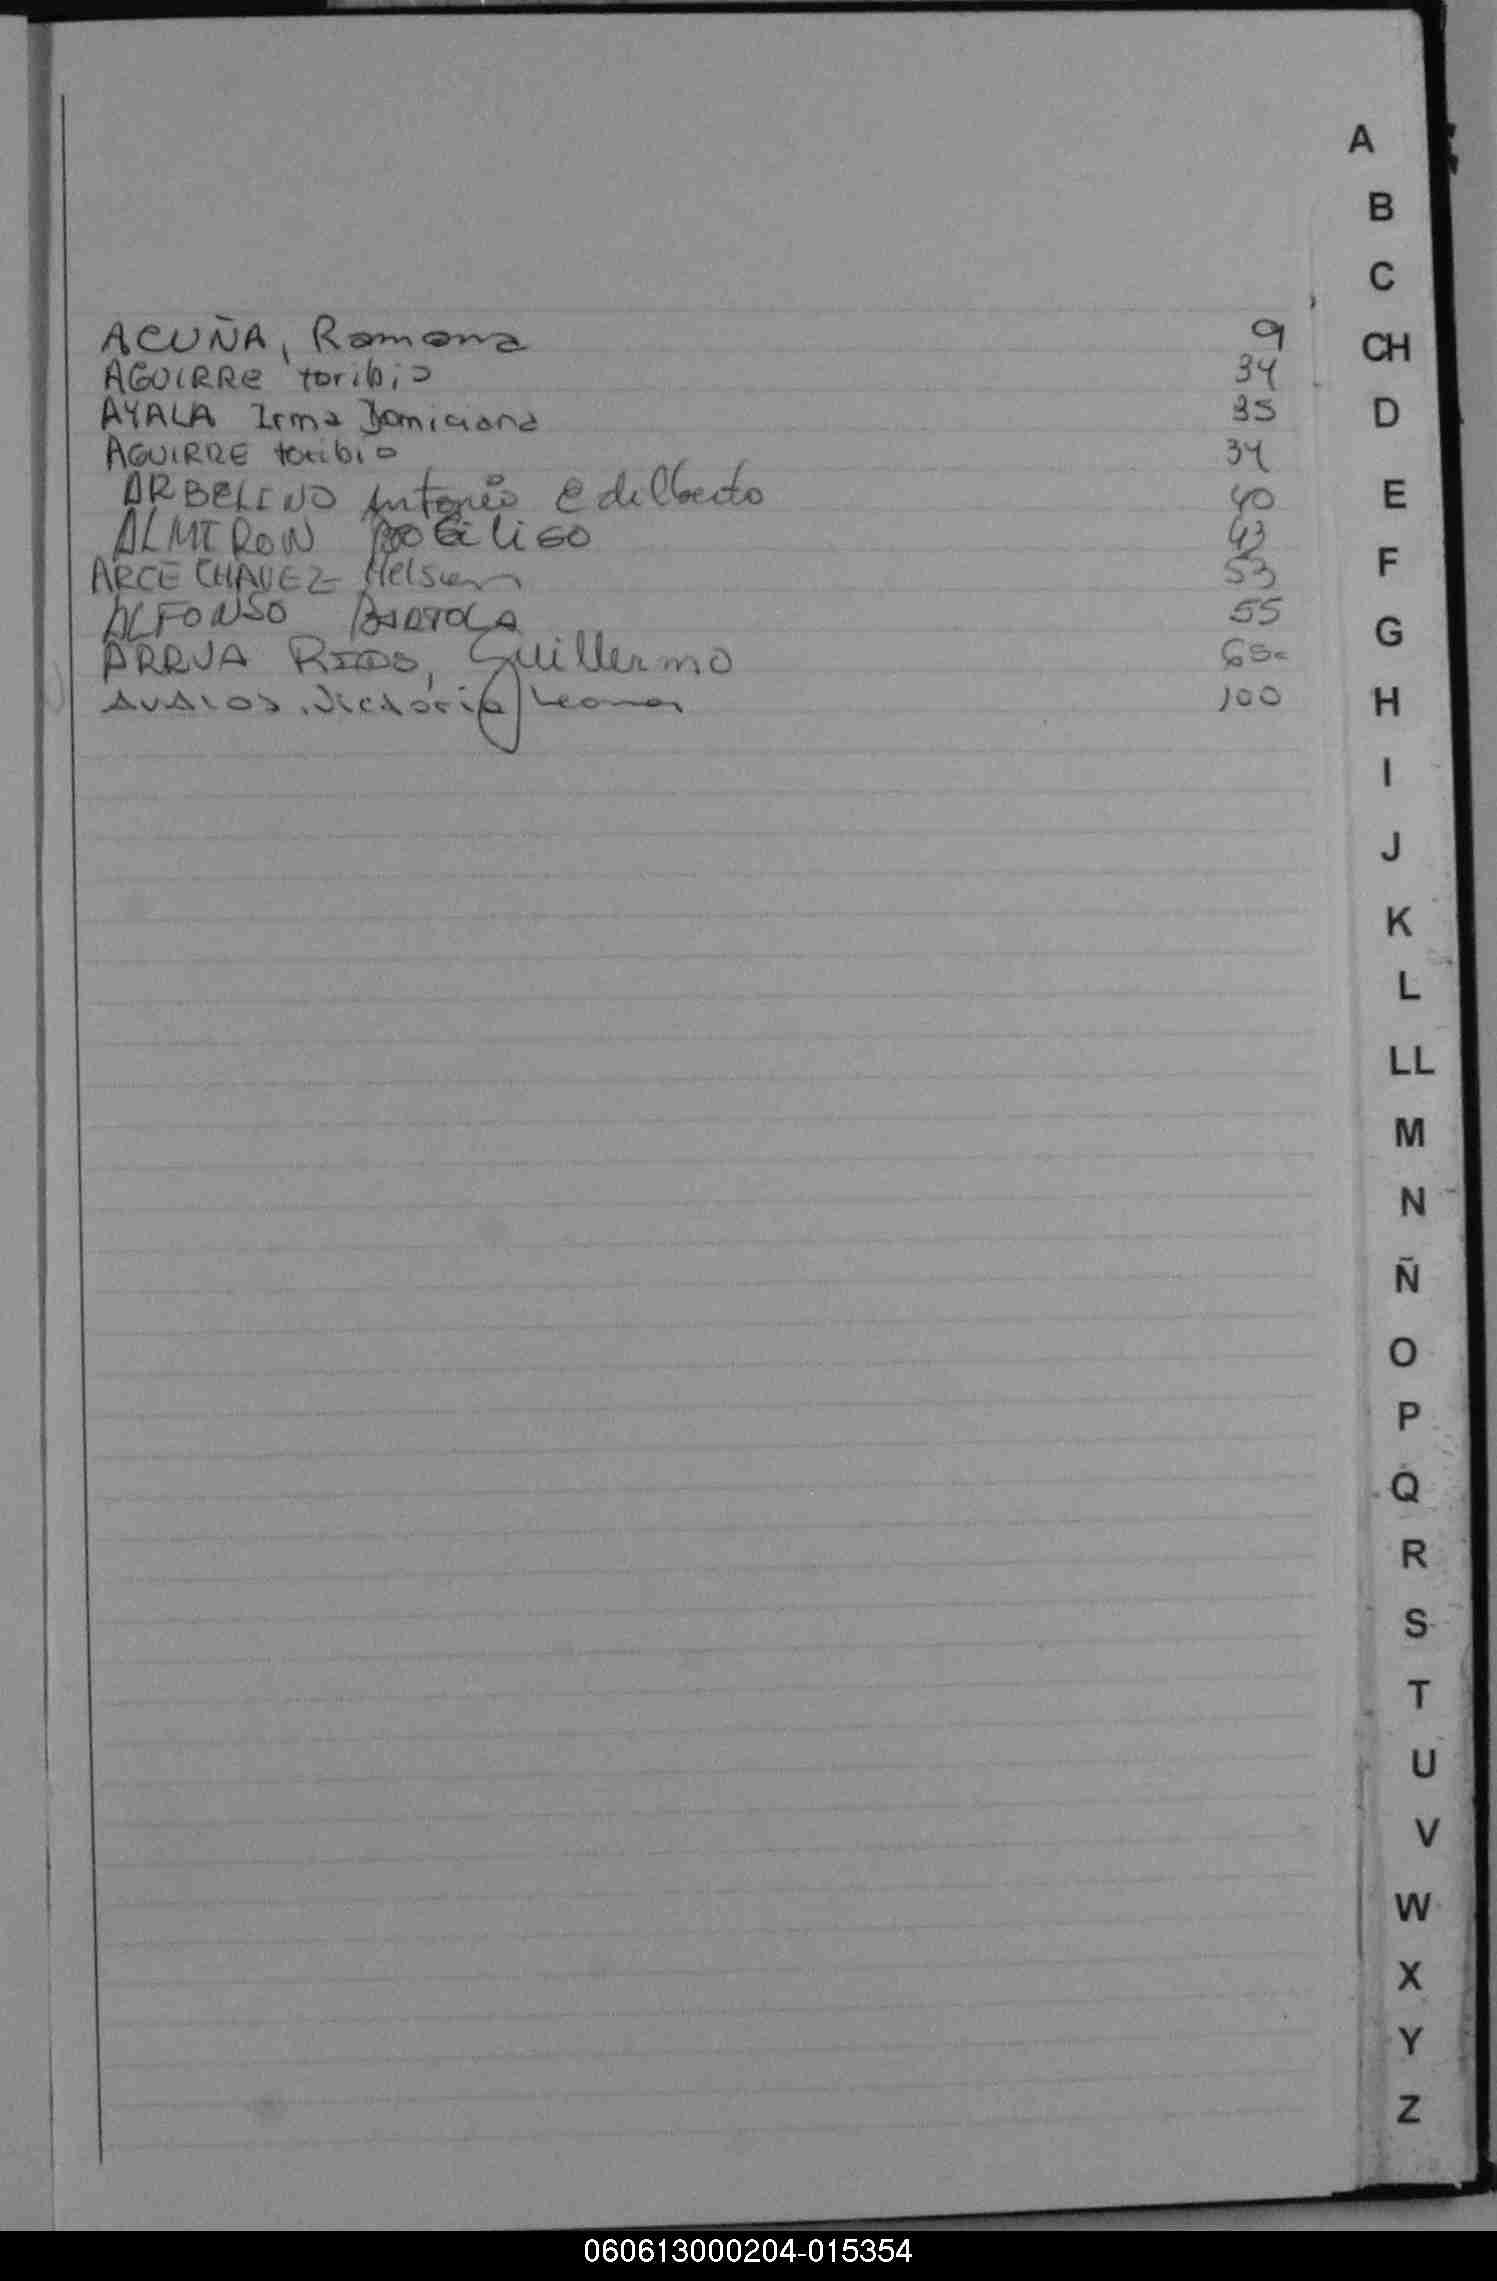 ACUÑA, Ramona 9
AGUIRRE toribio 34
AYALA Irma Domiciana 35
AGUIRRE toribio 34
ARBELINO Antonio Edilberto 40
ALMIRON 43
ARCE CHAVEZ Nelson 53
ALFONSO BARTOLA 55
ARRUA RIOS, Guillermo
AVALOS, Victoria Leonor 100
A
B
C
CH
D
E
F
G
H
I
J
K
L
LL
M
N
Ñ
O
P
Q
R
S
T
U
V
W
X
Y
Z
060613000204-015354